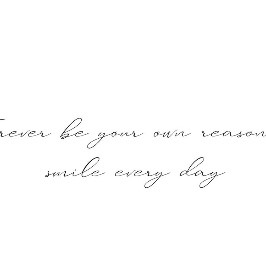 rever be your own reason
smile every day